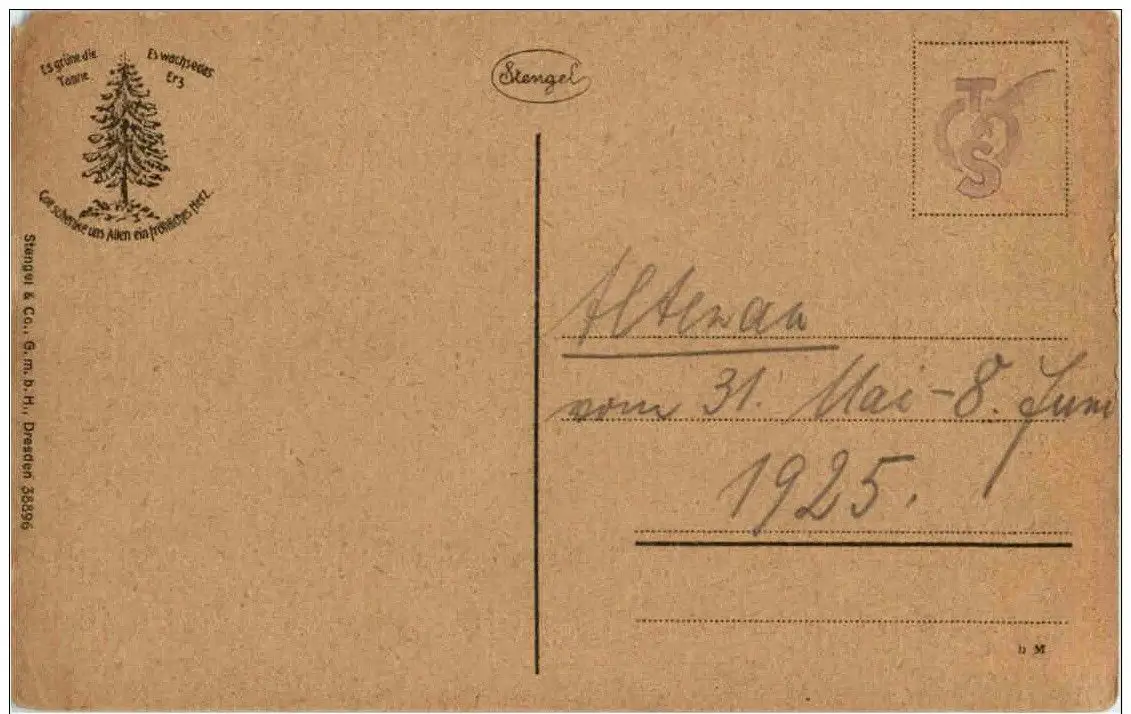 Es grüne die
Tanne
Es wachse das
Erz
Gott schenke uns Allen ein fröhliches Herz.
Stengel
T
S
Stengel & Co., G.m.b.H., Dresden 38896
Altenau
vom 31. Mai - 8. Juni
1925.
M